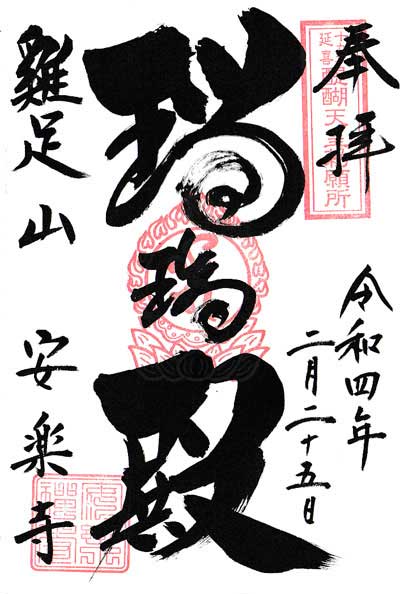 奉拝
延喜醍醐天皇願所
令和四年
二月二十五日
瑠璃殿
雞足山 安楽寺